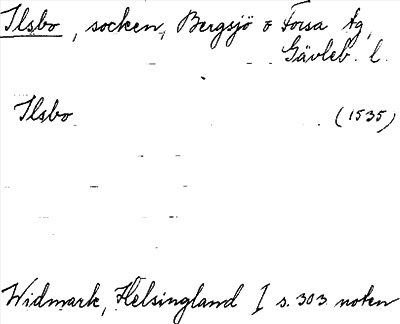 Ilsbo, socken, Bergsjö o Forsa tg,
Gävleb. l.
Ilsbo (1535)
Widmark, Helsingland I s. 303 noten